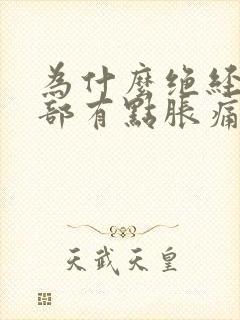 為什麼绝経
部有點脹痛
天武天皇